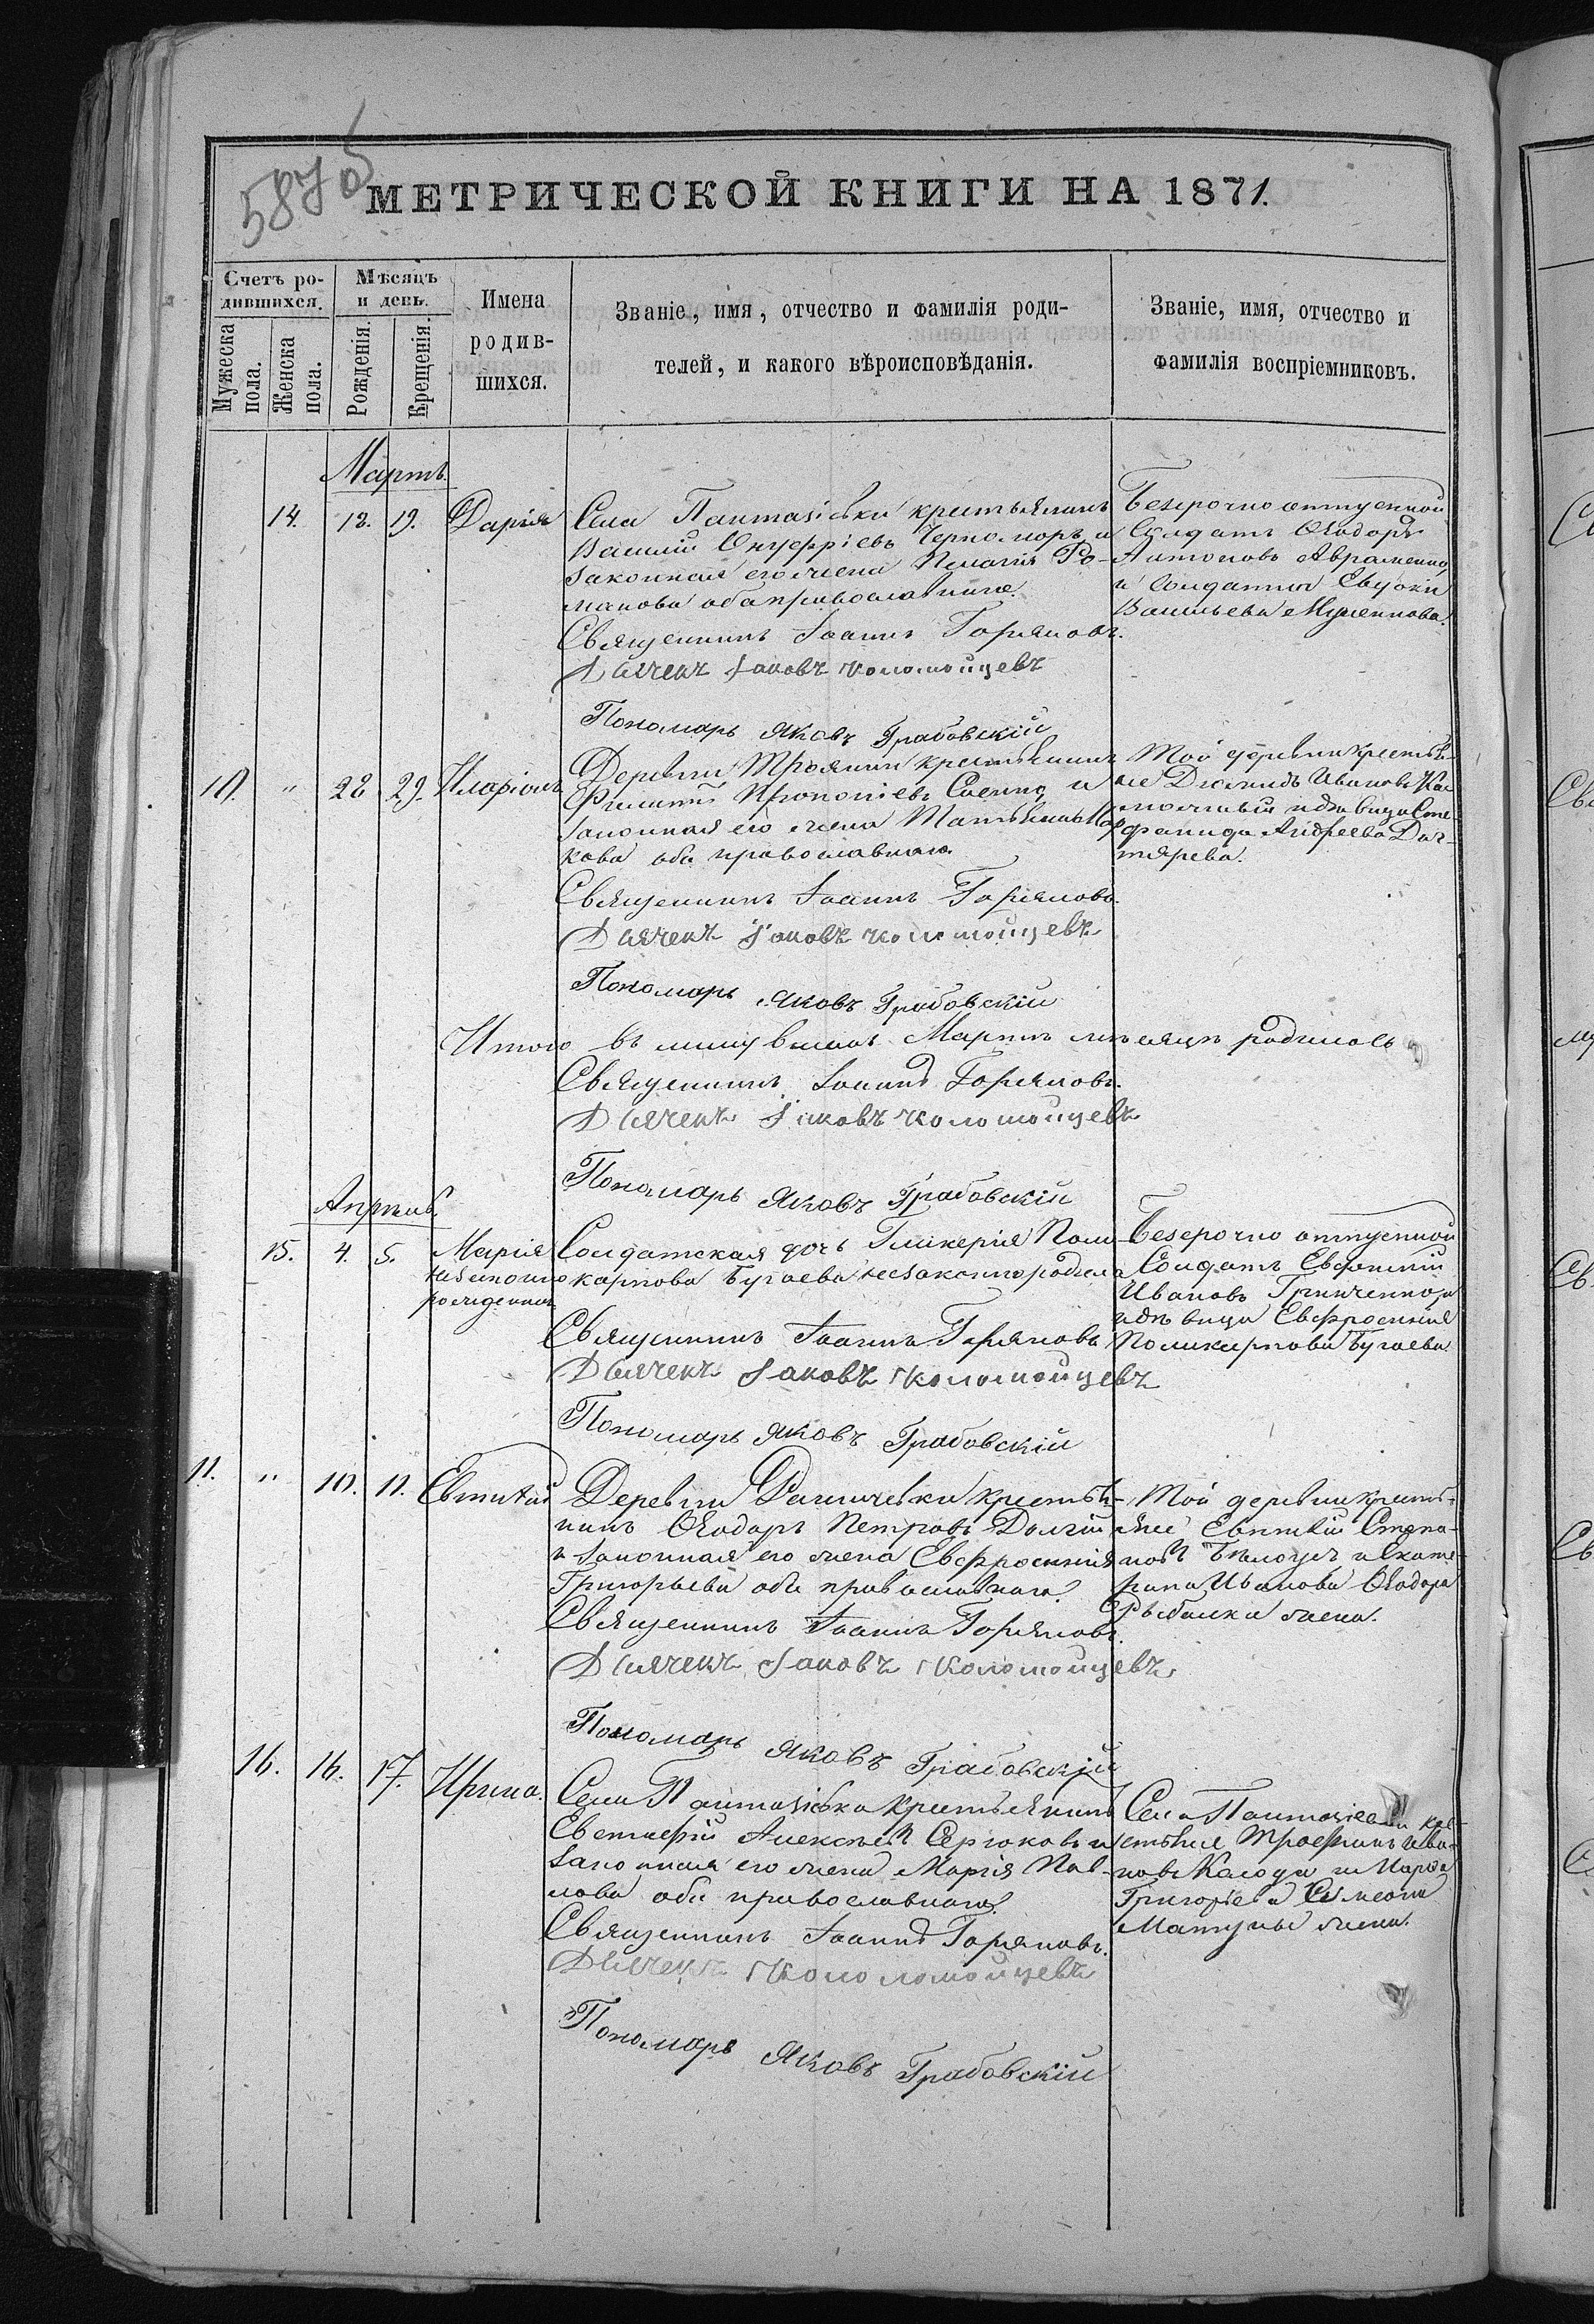 587об
МЕТРИЧЕСКОЙ КНИГИ НА 1871.
Счетъ ро-
дившихся.
Мужеска
пола.
Женска
пола.
Мѣсяцъ
и день.
Рожденія.
Крещенія.
Имена
родив-
шихся.
Званіе, имя, отчество и фамилія роди-
телей, и какого вѣроисповѣданія.
Званіе, имя, отчество и
фамилія воспріемниковъ.
Мартъ.
14. 12. 19. Дарія
Села Пантазіевки крестьянинъ
Василій Онуфріевъ Черноморъ и
законная его жена Пелагія Ро-
манова оба православнаго.
Священникъ Іоаннъ Горяновъ.
Дьячекъ Іаковъ Коломойцевъ
Пономарь Яковъ Грабовскій
Безсрочно отпускной
Солдатъ Ѳеодоръ
Антоновъ Авраменко
и Солдатка Евдокія
Васильева
10. " 28 29. Иларіонъ
Деревни Троянки крестьянинъ
Филиппъ Прокопіевъ Саенко и
законная его жена Татьяна Мар
кова оба православнаго.
Священникъ Іоаннъ Горяновъ.
Дьячекъ Іаковъ Коломойцевъ
Пономарь Яковъ Грабовскій
Той деревни крестья-
не Діомидъ Ивановъ
и дѣвица Сте-
фанида Андреева Дег-
тярева.
Итого въ минувшемъ Мартѣ мѣсяцѣ родилось
Священникъ Іоаннъ Горяновъ.
Дьячекъ Іаковъ Коломойцевъ
Пономарь Яковъ Грабовскій
Апрѣль.
15. 4. 5. Марія
незаконно
рожденная
Солдатская дочь Гликерія Поли
карпова Бугаева незаконно родила
Священникъ Іоаннъ Горяновъ
Дьячекъ Іаковъ Коломойцевъ
Пономарь Яковъ Грабовскій
Безсрочно отпускной
Солдатъ Евфимій
Ивановъ Гринченко и
дѣвица Евфросинія
Поликарпова Бугаева
11. " 10. 11. Евтихій
Деревни крестья-
нинъ Ѳеодоръ Петровъ Долгій
и законная его жена Евфросинія
Григорьева оба православнаго.
Священникъ Іоаннъ Горяновъ.
Дьячекъ Іаковъ Коломойцевъ
Пономарь Яковъ Грабовскій
Той деревни кресть-
яне Евтихій Степа-
новъ Бѣлоусъ и Екате-
рина Иванова Ѳеодора
Рыбалки жена.
16. 16. 17. Ирина.
Села Пантазіевки крестьянинъ
Елевтерій Алексѣевъ Сердюковъ и
законная его жена Марія Пав-
лова оба православнаго.
Священникъ Іоаннъ Горяновъ.
Дьячекъ Коломойцевъ
Пономарь Яковъ Грабовскій
Села Пантазіевки кре-
стьяне Трофимъ Ива-
новъ Колода и Марѳа
Григорьева Симеона
жена.